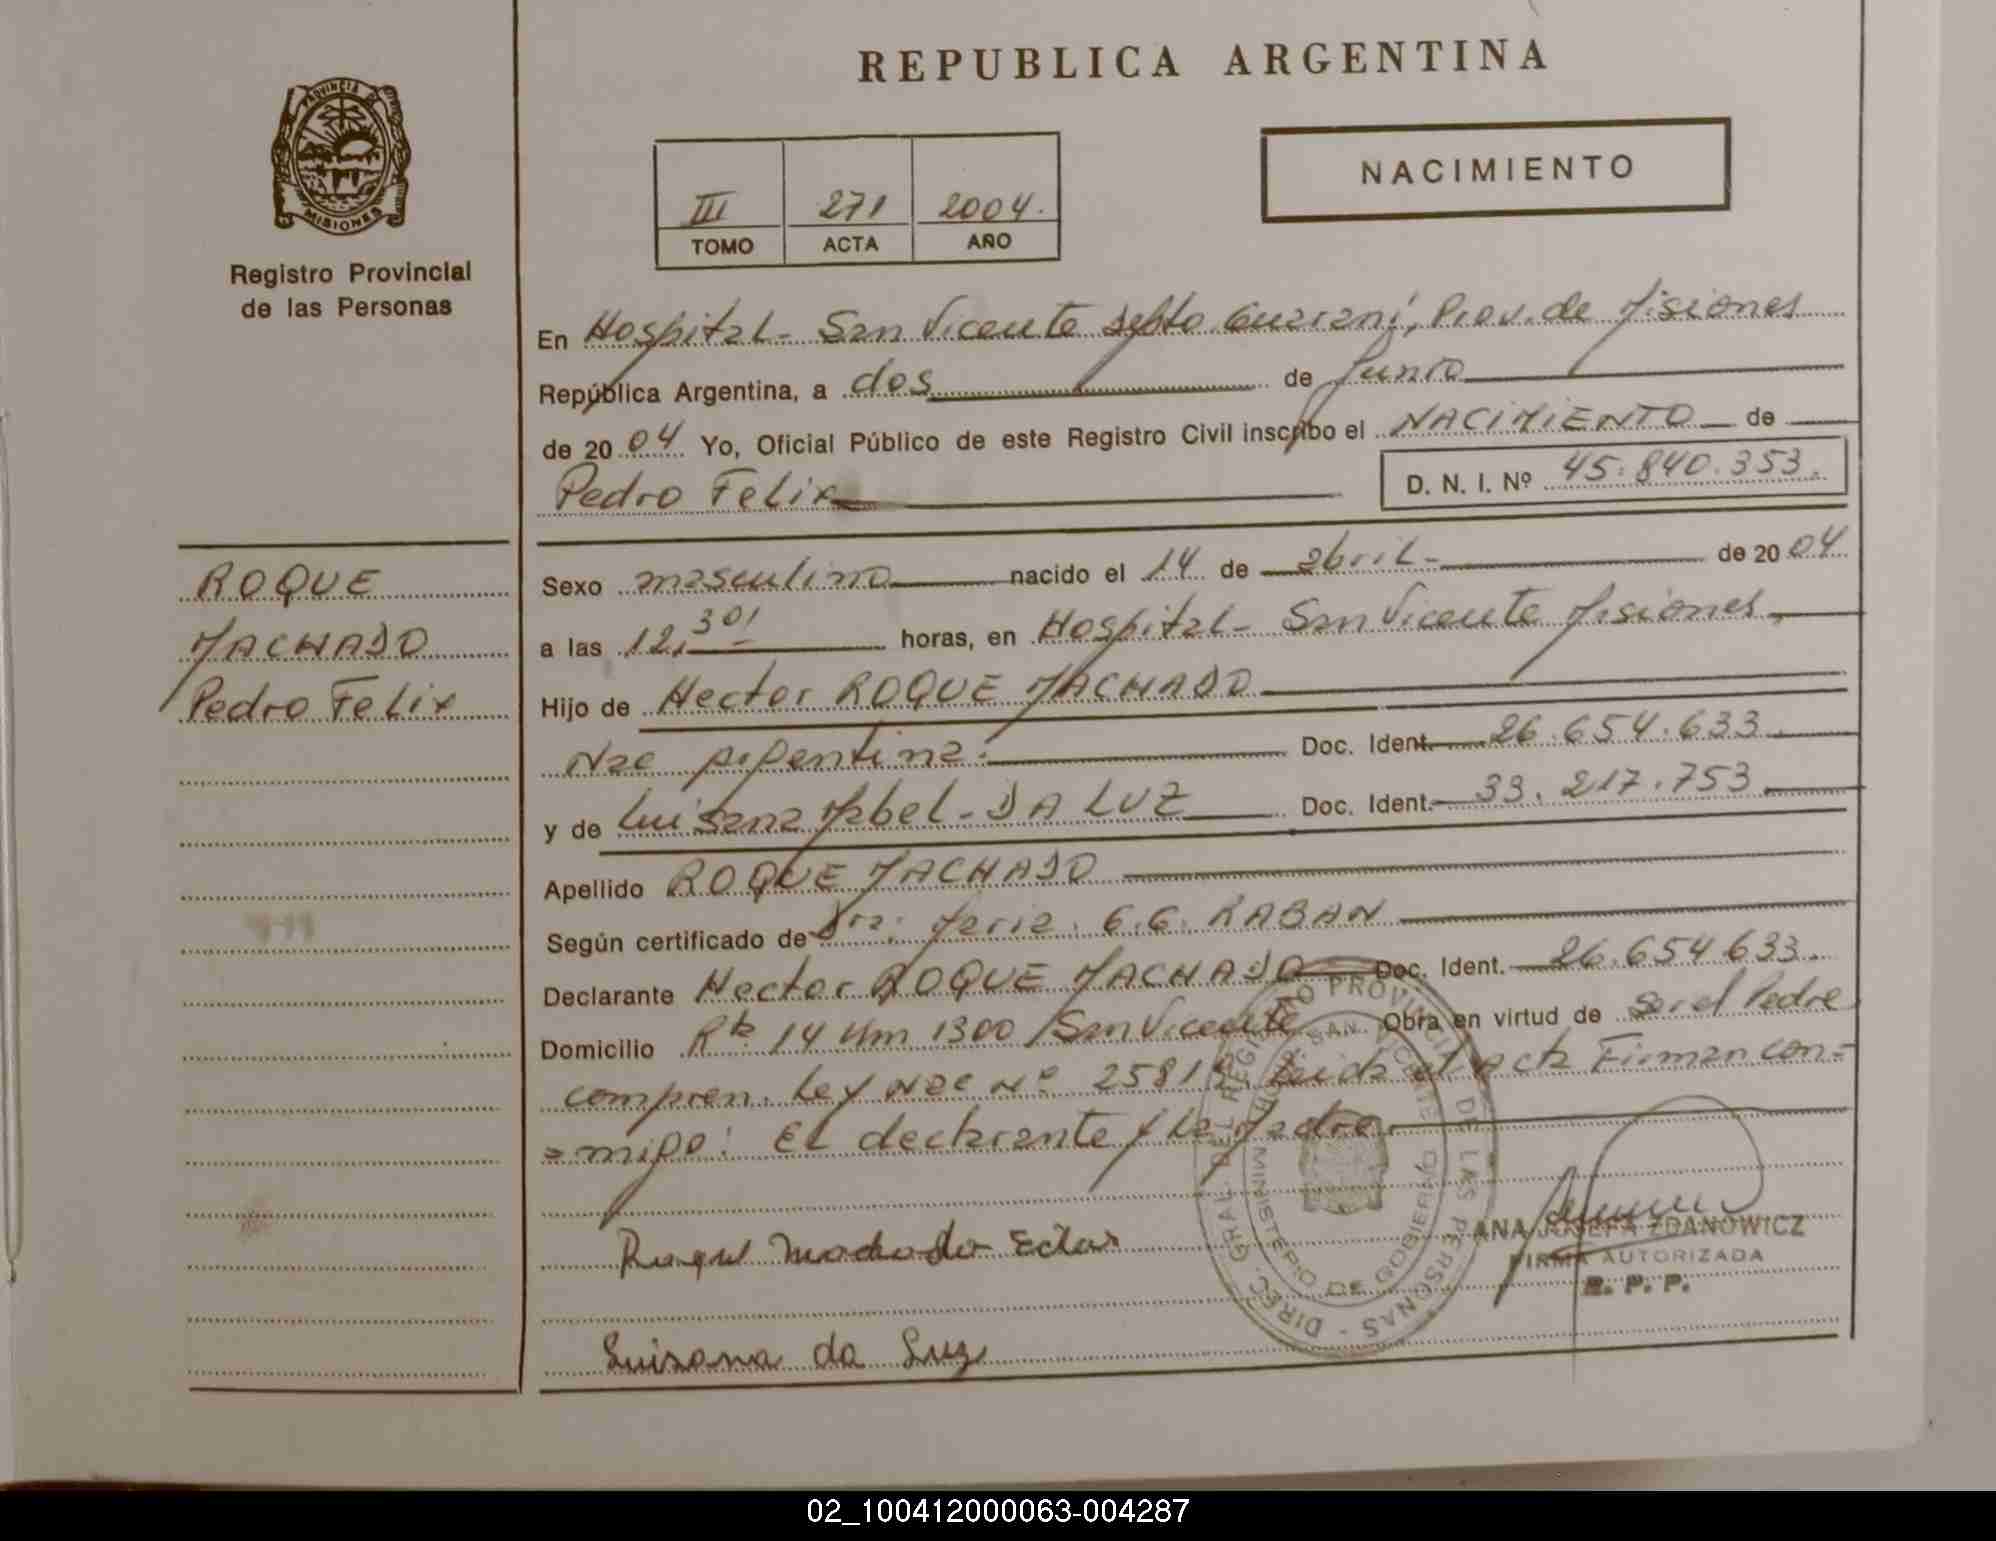 REPUBLICA ARGENTINA
PROVINCIA DE
MISIONES
Registro Provincial
de las Personas
III 271 2004.
TOMO ACTA AÑO
NACIMIENTO
En Hospital - San Vicente Depto Guarani, Prov. de Misiones
República Argentina, a dos de Junio
de 2004 Yo, Oficial Público de este Registro Civil inscribo el NACIMIENTO de
Pedro Felix D. N. I. Nº 45.840.353.
ROQUE
MACHADO
Pedro Felix
Sexo masculino nacido el 14 de abril - de 2004
a las 12,30' horas, en Hospital - San Vicente Misiones
Hijo de Hector ROQUE MACHADO
Nac Argentina. Doc. Ident. 26.654.633
y de Luisana Mabel - DA LUZ Doc. Ident. 33.217.753
Apellido ROQUE MACHADO
Según certificado de Dra: Maria. G.G. RABAN
Declarante Hector ROQUE MACHADO Doc. Ident. 26.654.633.
Domicilio Rta 14 Km 1300 San Vicente Obra en virtud de Ser el Padre
compren. Ley Nac Nº Leida el Acta Firman con-
=migo: El declarante y La Madre
Luisana da Luz
DIREC. GRAL. DEL REGISTRO PROVINCIAL DE LAS PERSONAS -
MINISTERIO DE GOBIERNO
SAN VICENTE
ANA JOSEFA ZDANOWICZ
FIRMA AUTORIZADA
R. P. P.
02_100412000063-004287